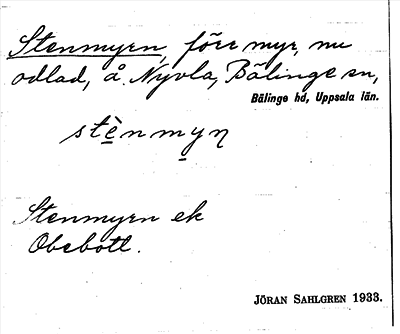 Stenmyrn, förr myr, nu
odlad, å. Nyvla, Bälinge sn,
Bälinge hd, Uppsala län.
stènmyn
Stenmyrn ek
Obebott.
JÖRAN SAHLGREN 1933.